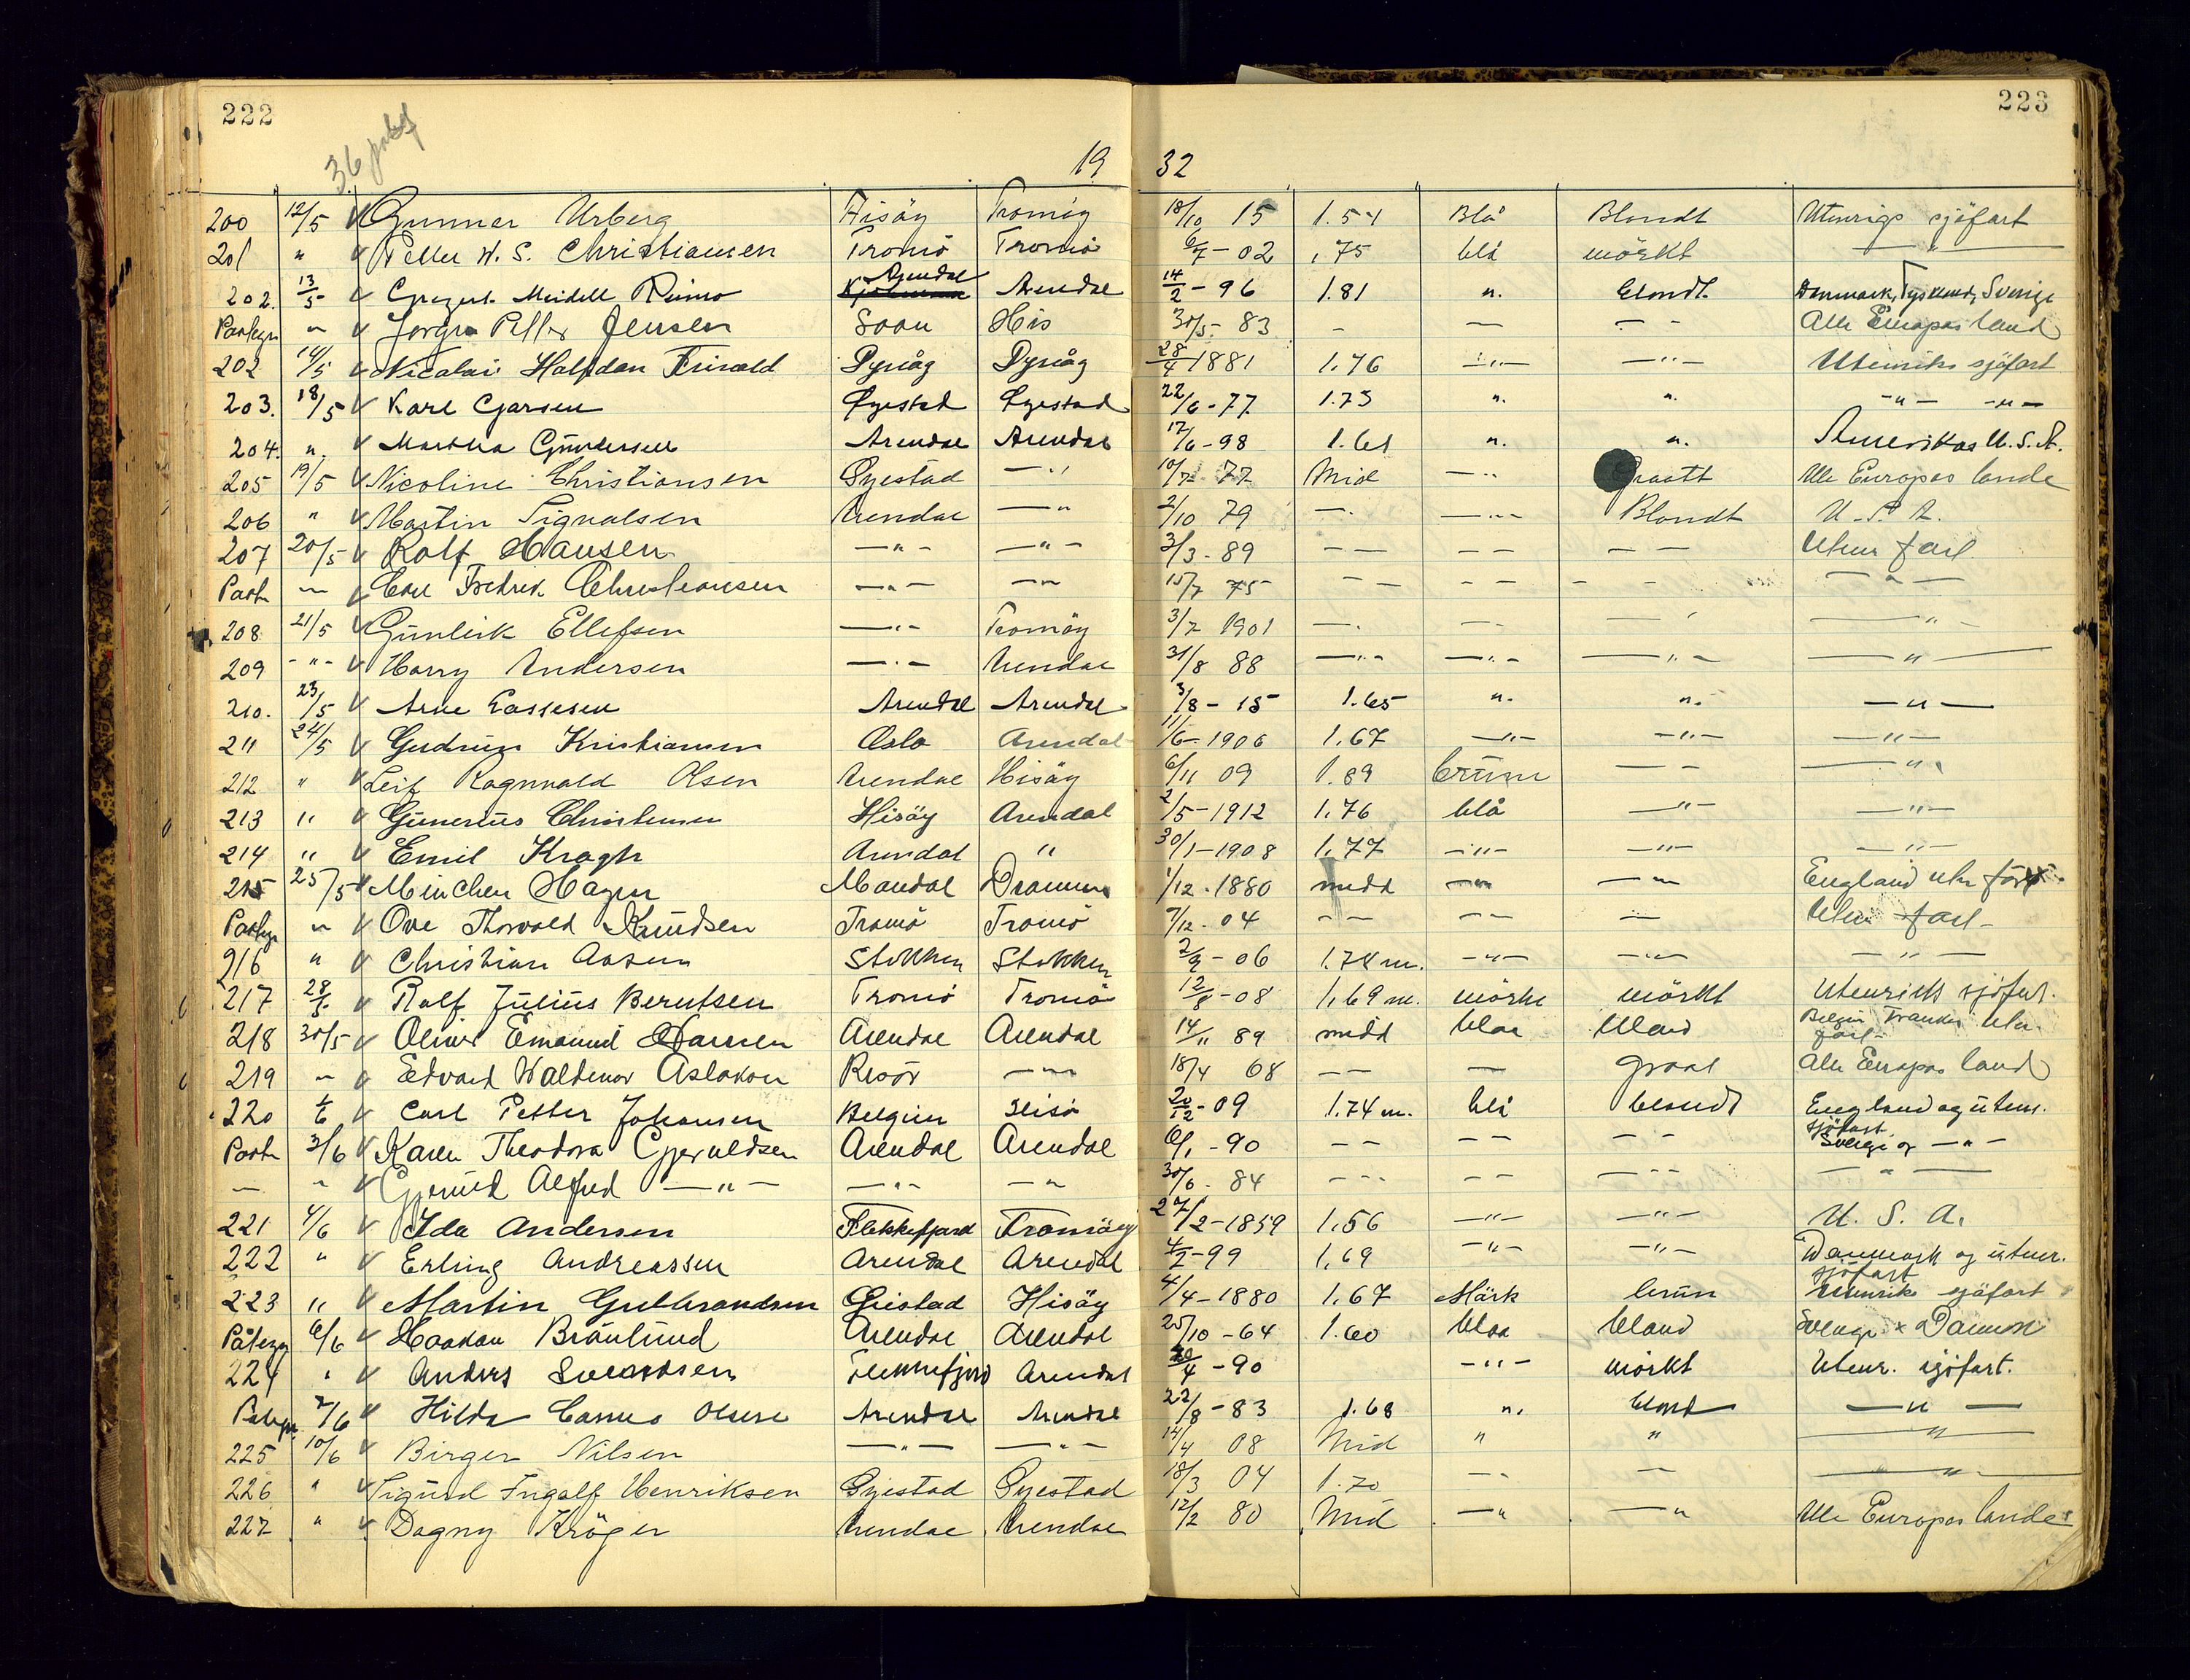 222
223
36
19 32
200 12/5 V Gunnar Urberg Hisöy Tromöy 18/10 15 1.54 Blå Blondt Utenrigs sjöfart
201 " V Petter W. S. Christiansen Tromö Tromö 6/7 - 02 ,75 blå mörkt — " —
202. 13/5 V Meidell Arendal Arendal 14/2 - 96 1.81 ". blondt. Danmark, Tyskland, Sverige
" V Petter Jensen Soon His 30/5 - 83 - — - - Alle Europas land
202 14/5 V Nicolai Halfdan Dypvåg Dypvåg 28/4 1881 1.76 -"- -"- Utenriks sjöfart
203. 18/5 V Karl Öyestad Öyestad 22/6 - 77 1.73 ". ". -"- -"-
204. ". V Martha Gundersen Arendal Arendal 17/6 - 98 1.61 ". ". Amerikas U.S.A.
205 19/5 V Nicoline Christiansen Öyestad -"- 10/7 77 Mid -"- Graatt Alle Europas lande
206 " V Martin Sigvalsen Arendal -"- 2/10 79 -"- -"- Blondt U.S.A.
207 20/5 V Rolf Hansen -"- -"- 3/3 - 89 - - - - - - Utenr fart
" V Carl Fredrik Christiansen -"- -"- 15/7 75 - - - - - - -"-
208 21/5 V Gunleik Ellefsen -"- Tromöy 3/7 1901 -"- - - -"- -"-
209 -"- V Harry Andersen -"- Arendal 31/8 88 -"- -"- -"- -"-
210. 23/5 V Arne Lassesen Arendal Arendal 3/8 - 15 1.65 ". ". -"-
211 24/5 V Gudrun Kristiansen Oslo Arendal 11/6 - 1906 1,67 -"- -"- -"-
212 " V Leif Ragnvald Olsen Arendal Hisöy 6/11 09 1.89 brune - - -"-
213 " V Gunerius Christensen Hisöy Arendal 2/5 - 1912 1,76 blå -"- -"-
214 " V Emil Kragh Arendal " 30/1 - 1908 1,77 -"- -"- -"-
215 25/5 V Minchen Hagen Mandal Drammen 1/12 - 1880 midd -"- -"- England utenr fart
" V Ove Thorvald Knudsen Tromö Tromö 7/12 - 04 - - - - — Utenr fart
216 " V Christian Aasen Stokken Stokken 2/9 - 06 1.74 m. -"- -"- -"-
217 28/5 V Rolf Julius Berntsen Tromö Tromö 12/8 - 08 1,69 m. mörke mörkt Utenriks sjöfart.
218 30/5 V Oliver Emanuel Hansen Arendal Arendal 14/11 89 midd blaa blond Belgien Frankr Utenr.
fart
219 " V Edvard Waldemar Aslaksen Risör -"- 18/4 68 - - — graat Alle Europas land
220 1/6 V Carl Petter Johansen Belgien Hisö 20/12 - 09 1.74 m. blå blondt England og utenr.
sjöfart
3/6 V Karen Theodora Gjeruldsen Arendal Arendal 6/1 - 90 - - - - - - Sverige og -"-
— " V Gjeruld Alfred -"- -"- -"- 30/6 - 84 - - - - - - -"-
221 4/6 V Ida Andersen Flekkefjord Tromöy 27/2 - 1859 1,56 -"- -"- U. S. A.
222 " V Erling Andreassen Arendal Arendal 4/2 - 99 1,69 -"- -"- Danmark og utenr.
sjöfart
223 " V Martin Gulbrandsen Öiestad Hisöy 4/4 - 1880 1,67 Mörk brun Utenriks sjöfart
6/6 V Haakon Brönlund Arendal Arendal 25/10 - 64 1.60 blaa blond Sverige × Danmark
224 " V Anders Flekkefjord Arendal /4 - 90 -"- mörkt Utenr. sjöfart.
7/6 V Hilda Olsen Arendal Arendal 22/8 - 83 1.68 ". blond -"-
225 10/6 V Birger Nilsen -"- -"- 14/4 08 Mid " " "
226 " V Sigurd Ingolf Henriksen Öyestad Öyestad 18/3 04 1.70 -"- — -"-
227 " V Dagny Kröger Arendal Arendal 12/2 80 Mid -"- -"- Alle Europas lande